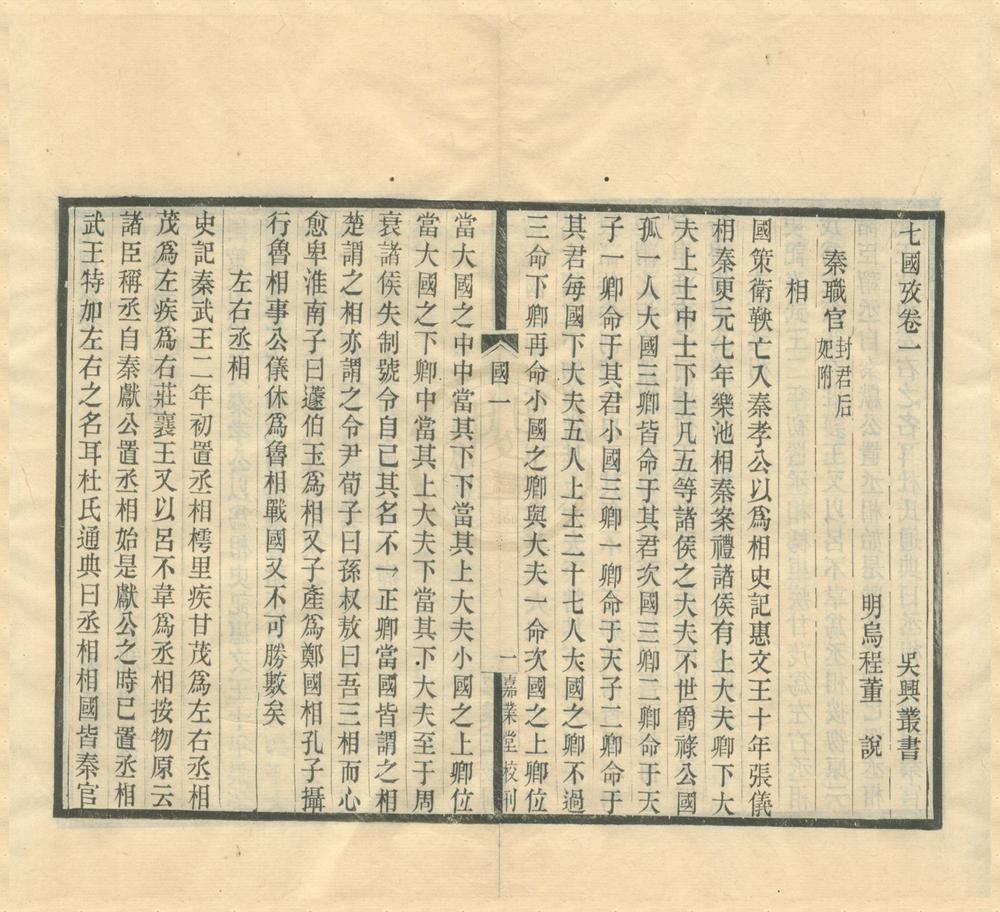 七國攷卷一　吳興叢書
明烏程董　說
秦職官封君后妃附
相
國策衛鞅亡入秦孝公以爲相史記惠文王十年張儀
相秦更元七年樂池相秦案禮諸侯有上大夫卿下大
夫上士中士下士凡五等諸侯之大夫不世爵祿公國
孤一人大國三卿皆命于其君次國三卿二卿命于天
子一卿命于其君小國三卿一卿命于天子二卿命于
其君每國下大夫五人上士二十七人大國之卿不過
三命下卿再命小國之卿與大夫一命次國之上卿位
國一
一
嘉業堂校刊
當大國之中中當其下下當其上大夫小國之上卿位
當大國之下卿中當其上大夫下當其下大夫至于周
衰諸侯失制號令自已其名不一正卿當國皆謂之相
楚謂之相亦謂之令尹荀子曰孫叔敖曰吾三相而心
愈卑淮南子曰蘧伯玉爲相又子產爲鄭國相孔子攝
行魯相事公儀休爲魯相戰國又不可勝數矣
左右丞相
史記秦武王二年初置丞相樗里疾甘茂爲左右丞相
茂爲左疾爲右莊襄王又以呂不韋爲丞相按物原云
諸臣稱丞自秦獻公置丞相始是獻公之時已置丞相
武王特加左右之名耳杜氏通典曰丞相相國皆秦官